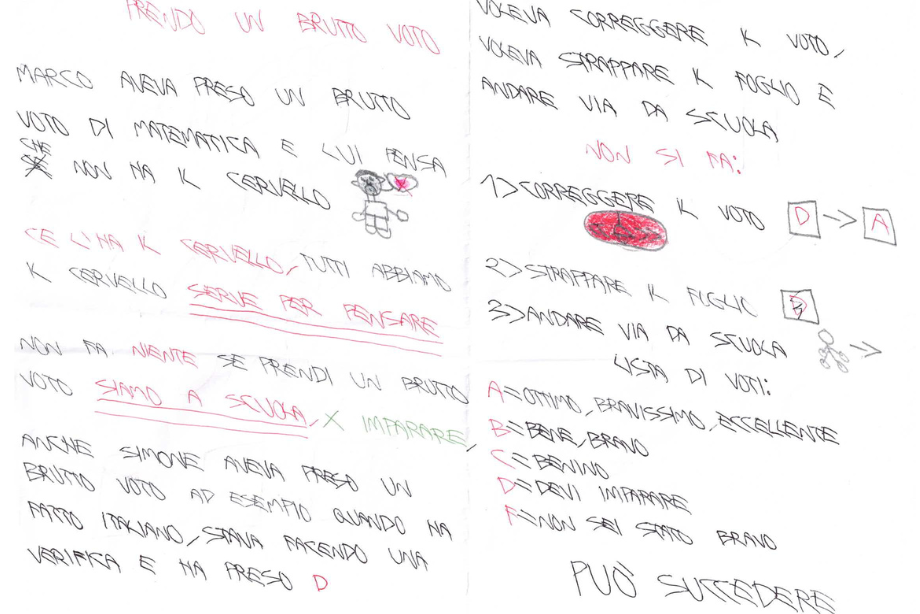 PRENDO UN BRUTTO VOTO
MARCO AVEVA PRESO UN BRUTTO
VOTO DI MATEMATICA E LUI PENSA
CHE
SE NON HA IL CERVELLO
CE L'HA IL CERVELLO, TUTTI ABBIAMO
IL CERVELLO SERVE PER PENSARE
NON FA NIENTE SE PRENDI UN BRUTTO
VOTO SIAMO A SCUOLA, X IMPARARE,
ANCHE SIMONE AVEVA PRESO UN
BRUTTO VOTO AD ESEMPIO QUANDO HA
FATTO ITALIANO, STAVA FACENDO UNA
VERIFICA E HA PRESO D
VOLEVA CORREGGERE IL VOTO,
VOLEVA STRAPPARE IL FOGLIO E
ANDARE VIA DA SCUOLA
NON SI FA:
1> CORREGGERE IL VOTO D -> A
2> STRAPPARE IL FOGLIO D
3> ANDARE VIA DA SCUOLA ->
LISTA DI VOTI:
A = OTTIMO, BRAVISSIMO, ECCELLENTE
B = BENE, BRAVO
C = BENINO
D = DEVI IMPARARE
F = NON SEI STATO BRAVO
PUÒ SUCCEDERE